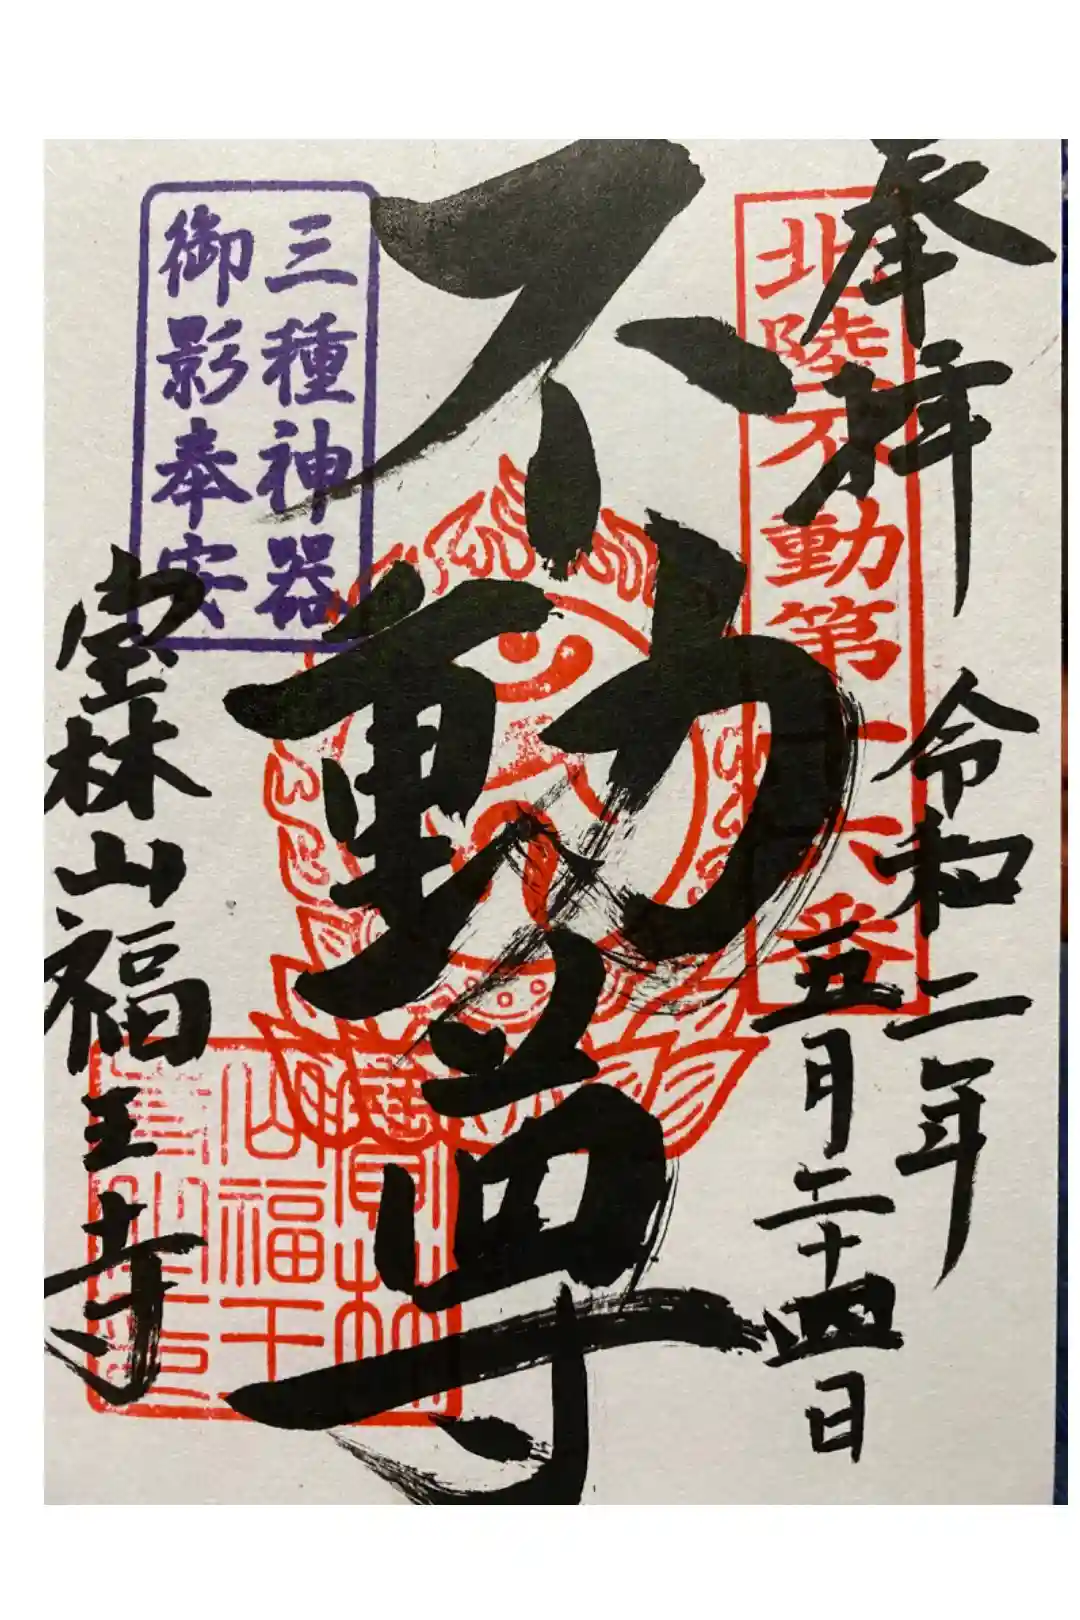 奉拝
令和二年
五月二十四日
北陸不動第六番
不動尊
三種神器
御影奉安
宝林山福王寺